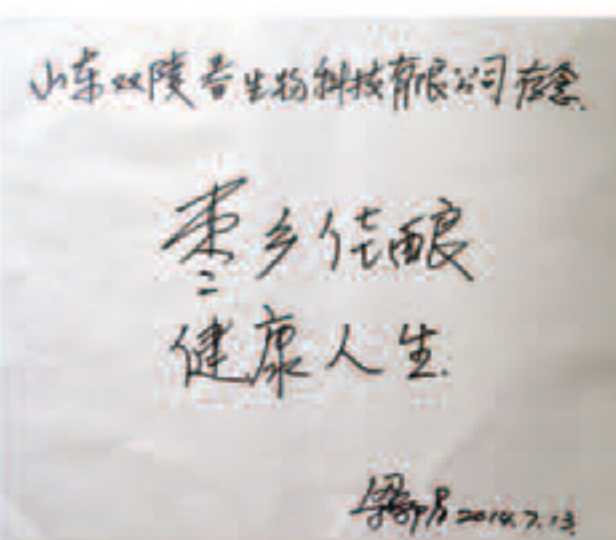 山东双陵春生物科技有限公司存念.
枣乡佳酿
健康人生.
梁 2014.7.13.